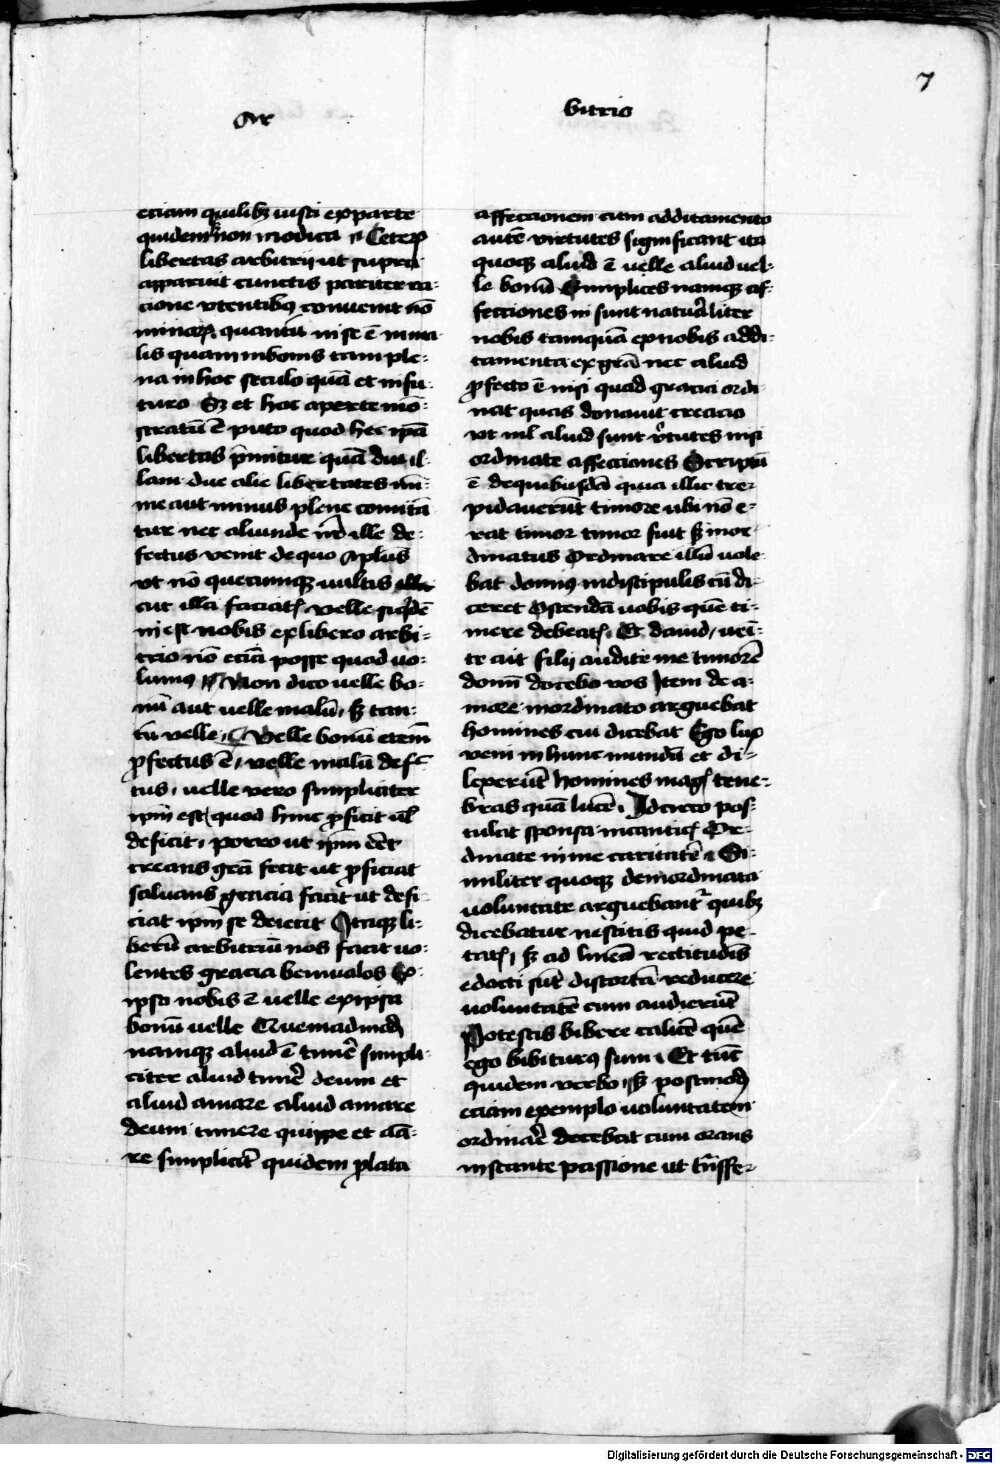 7
Ar
bitrio
eciam quilibꝫ iusti ex parte
quidem non modica Ceteꝝ
libertas arbitrij ut supra
apparuit cunctis pariter ra
cione vtentibꝰ conuenit nō
minor quantū in se ē in ma
lis quam in bonis tam ple-
na in hoc seculo quā et in fu-
turo Sꝫ et hoc aperte mō-
stratū ē puto quod hec ip̄a
libertas p̄mitur quā diu il-
lam due alie libertates mi-
me aut minus plene comitā
tur nec aliunde nr̄ ille de-
fectus venit de quo aplus
vt nō quecumqꝫ uultis illa
cut illa faciatꝭ velle siqͥdē
inest nobis ex libero arbi-
trio nō eciā posse quod uo-
lumꝰ Non dico uelle bo-
nū aut uelle malū, sꝫ tan-
tū velle, Velle bonū etem̄
ꝓfectus ē, velle malū defc̄
tus, uelle vero simpliciter
ipm̄ est quod hinc ꝓficit ul̄
deficit, porro ut ipm̄ eēt
creans grā fecit ut ꝓficiat
saluans gracia facit ut defi-
ciat ipm̄ se deiecit Itaqꝫ li-
berū arbitriū nos facit uo-
lentes gracia beniualos Ex
ipso nobis ē uelle ex ipsa
bonū uelle Quemadmodū
namqꝫ aliud ē timēr simpli-
citer aliud timēr deum et
aliud amare aliud amare
deum timere quippe et ama-
re simplicitꝰ quidem ꝓlata
affeccionem cum additamento
autē virtutes significant ita
quoqꝫ aliud ē uelle aliud uel-
le bonū Simplices namqꝫ af-
fecciones in sunt natuᷓliter
nobis tamquā ex nobis addi-
tamenta ex grā nec aliud
ꝓfecto ē nisi quod gracia ordi-
nat quas donauit creacio
vt nil aliud sunt vͥtutes nisi
ordinate affecciones Scriptū
ē de quibusdā quia illic tre-
pidauerūt timore ubi nō e-
rat timor timor fuit sꝫ inor-
dinatus Ordinare illū uole-
bat domiꝰ in discipulis cū di-
ceret Ostendā uobis quē ti-
mere debeatꝭ. Et dauid, veni-
te ait filij audite me timorē
domī docebo vos Item de a-
more inordinato arguebat
homines cū dicebat Ego lux
veni in hunc mundū et di-
lexerūt homines magꝭ tene-
bras quā lucē. Idcirco pos-
tulat sponsa in canticꝭ Or-
dinate in me caritatē Si-
militer quoqꝫ de inordinata
uoluntate arguebantᷣ quibꝫ
dicebatur nescitis quid pe-
tatꝭ, sꝫ ad lineā rectitudīs
edocti sūt distortā reducere
uoluntatē cum audierūt
Potestis bibere calicē quē
ego bibiturꝰ sum, Et tūc
quidem verbo, sꝫ postmodū
eciam exemplo uoluntatem
ordinaēr docebat cum orans
instante passione ut tn̄sfer-
Digitalisierung gefördert durch die Deutsche Forschungsgemeinschaft - DFG